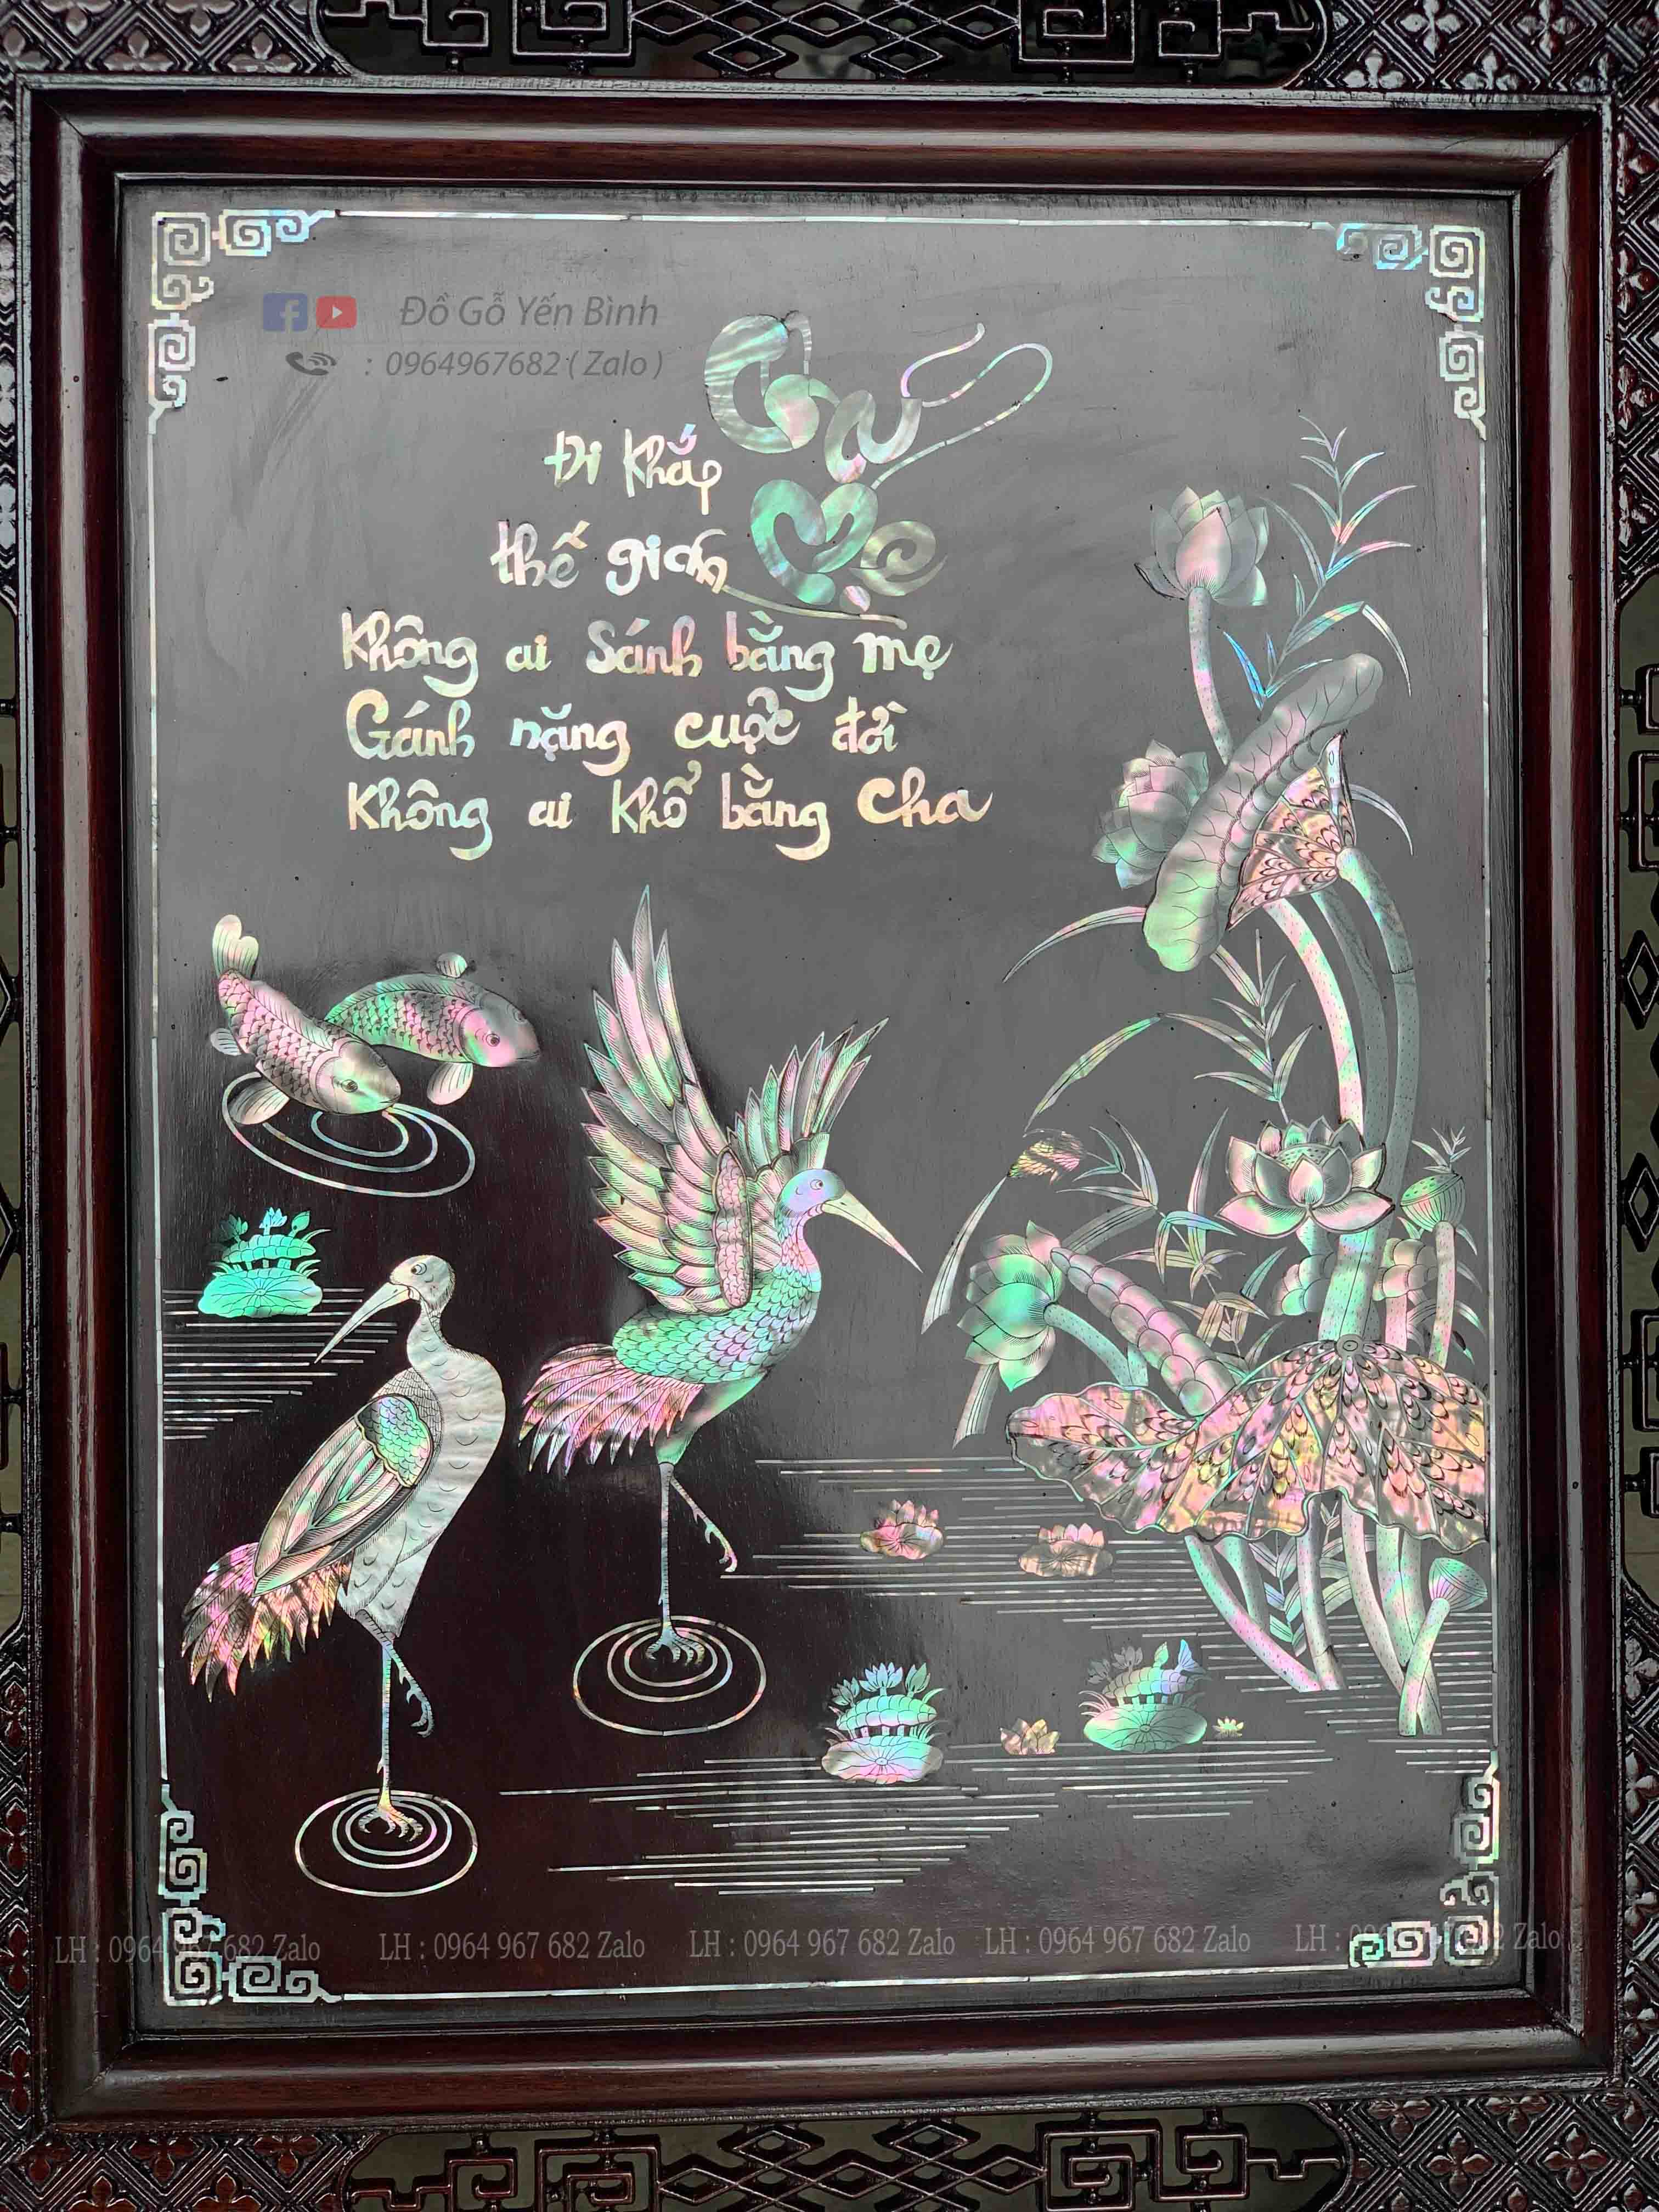 Đồ Gỗ Yến Bình
: 0964967682 ( Zalo )
Cha
Mẹ
Đi khắp
thế gian
Không ai Sánh bằng mẹ
Gánh nặng cuộc đời
Không ai khổ bằng Cha
LH : 0964 967 682 Zalo LH : 0964 967 682 Zalo LH : 0964 967 682 Zalo LH : 0964 967 682 Zalo LH : 0964 967 682 Zalo